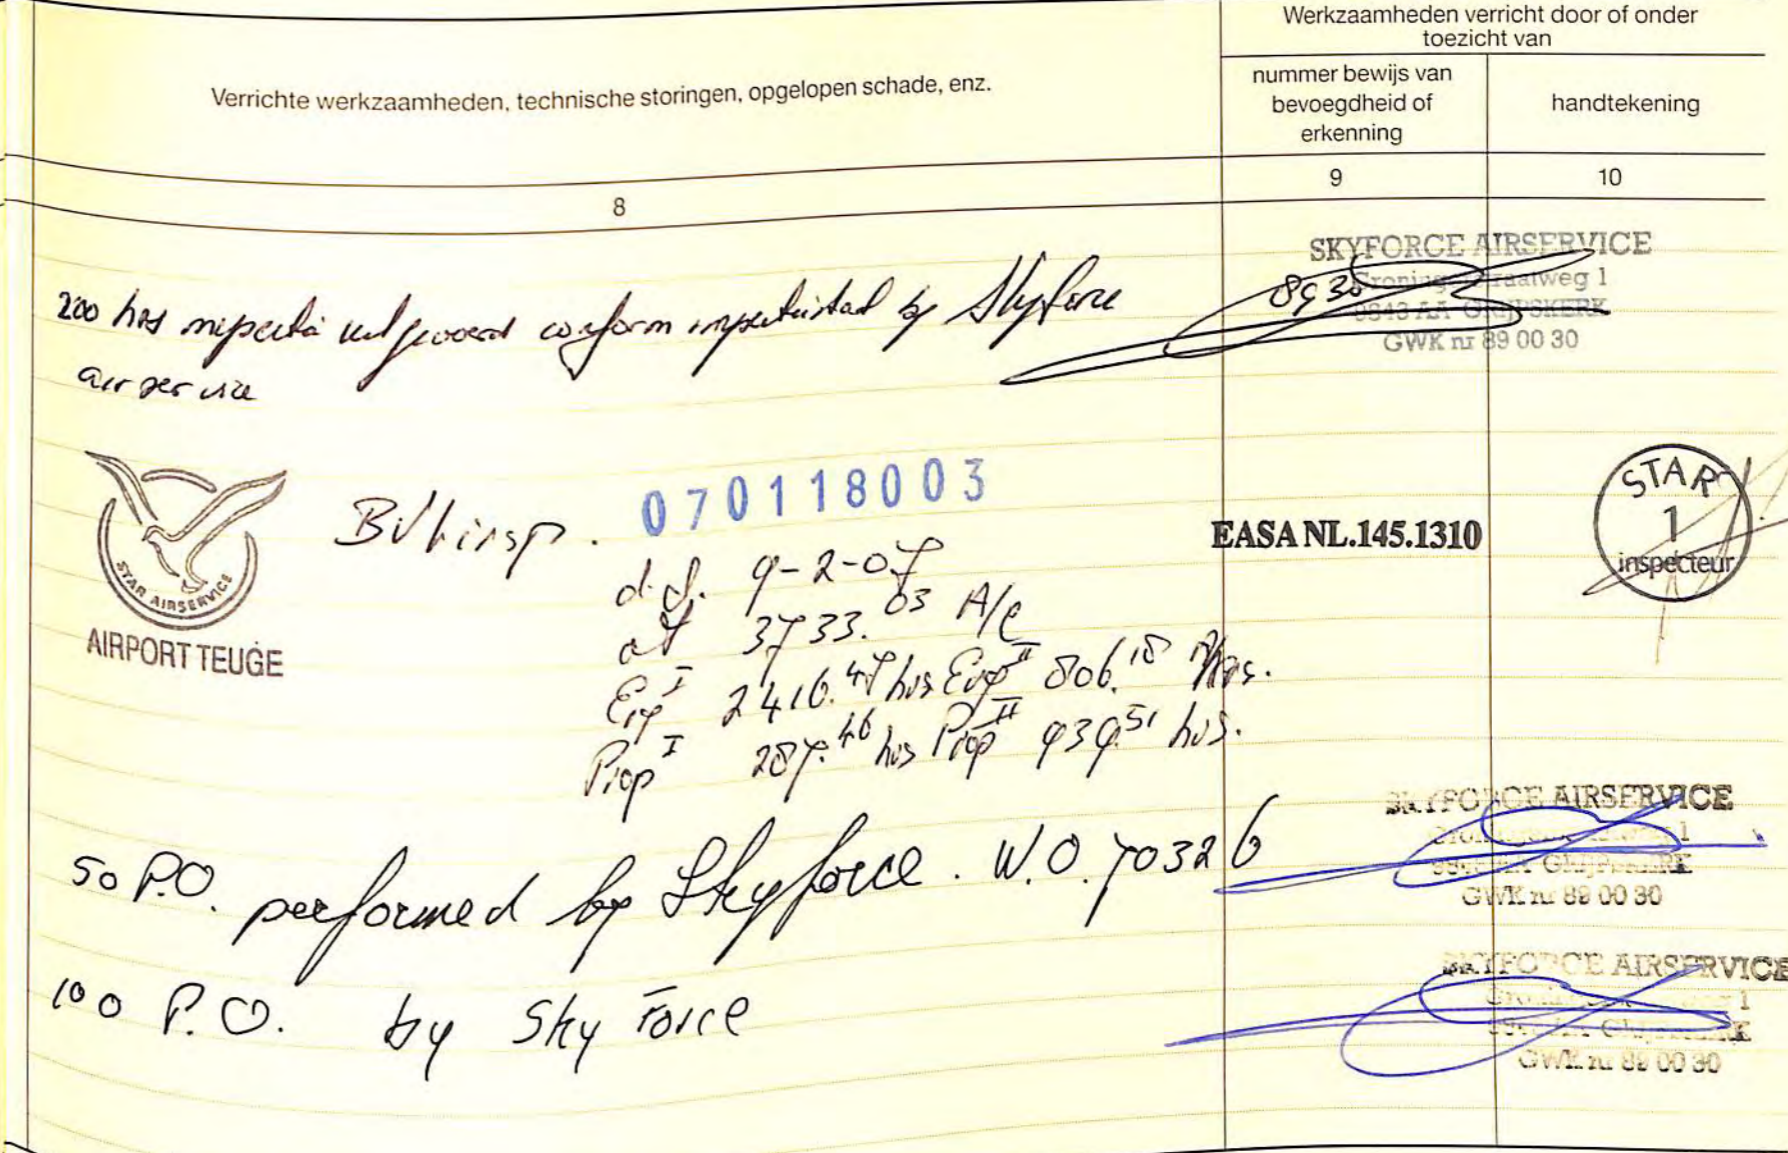 Werkzaamheden verricht door of onder
toezicht van
Verrichte werkzaamheden, technische storingen, opgelopen schade, enz.
nummer bewijs van
bevoegdheid of
erkenning
handtekening
8
9
10
200 hrs inspectie uitgevoerd conform by Skyforce
airservice
SKYFORCE AIRSERVICE
8930
1
9843 AA GRIJPSKERK
GWK nr 89 00 30
STAR AIRSERVICE
AIRPORT TEUGE
BVI insp. 070118003
d.d. 9-2-07
at 3733.03 A/C
Eng I 2416.47 hrs Eng II 806.18 hrs.
Prop I 287.46 hrs Prop II 939.51 hrs.
EASA NL.145.1310
STAR
1
inspecteur
50 P.O. performed by Skyforce. W.O. 70326
SKYFORCE AIRSERVICE
1
GRIJPSKERK
GWK nr 89 00 30
100 P.O. by Sky Force
SKYFORCE AIRSERVICE
1
GWK nr 89 00 30